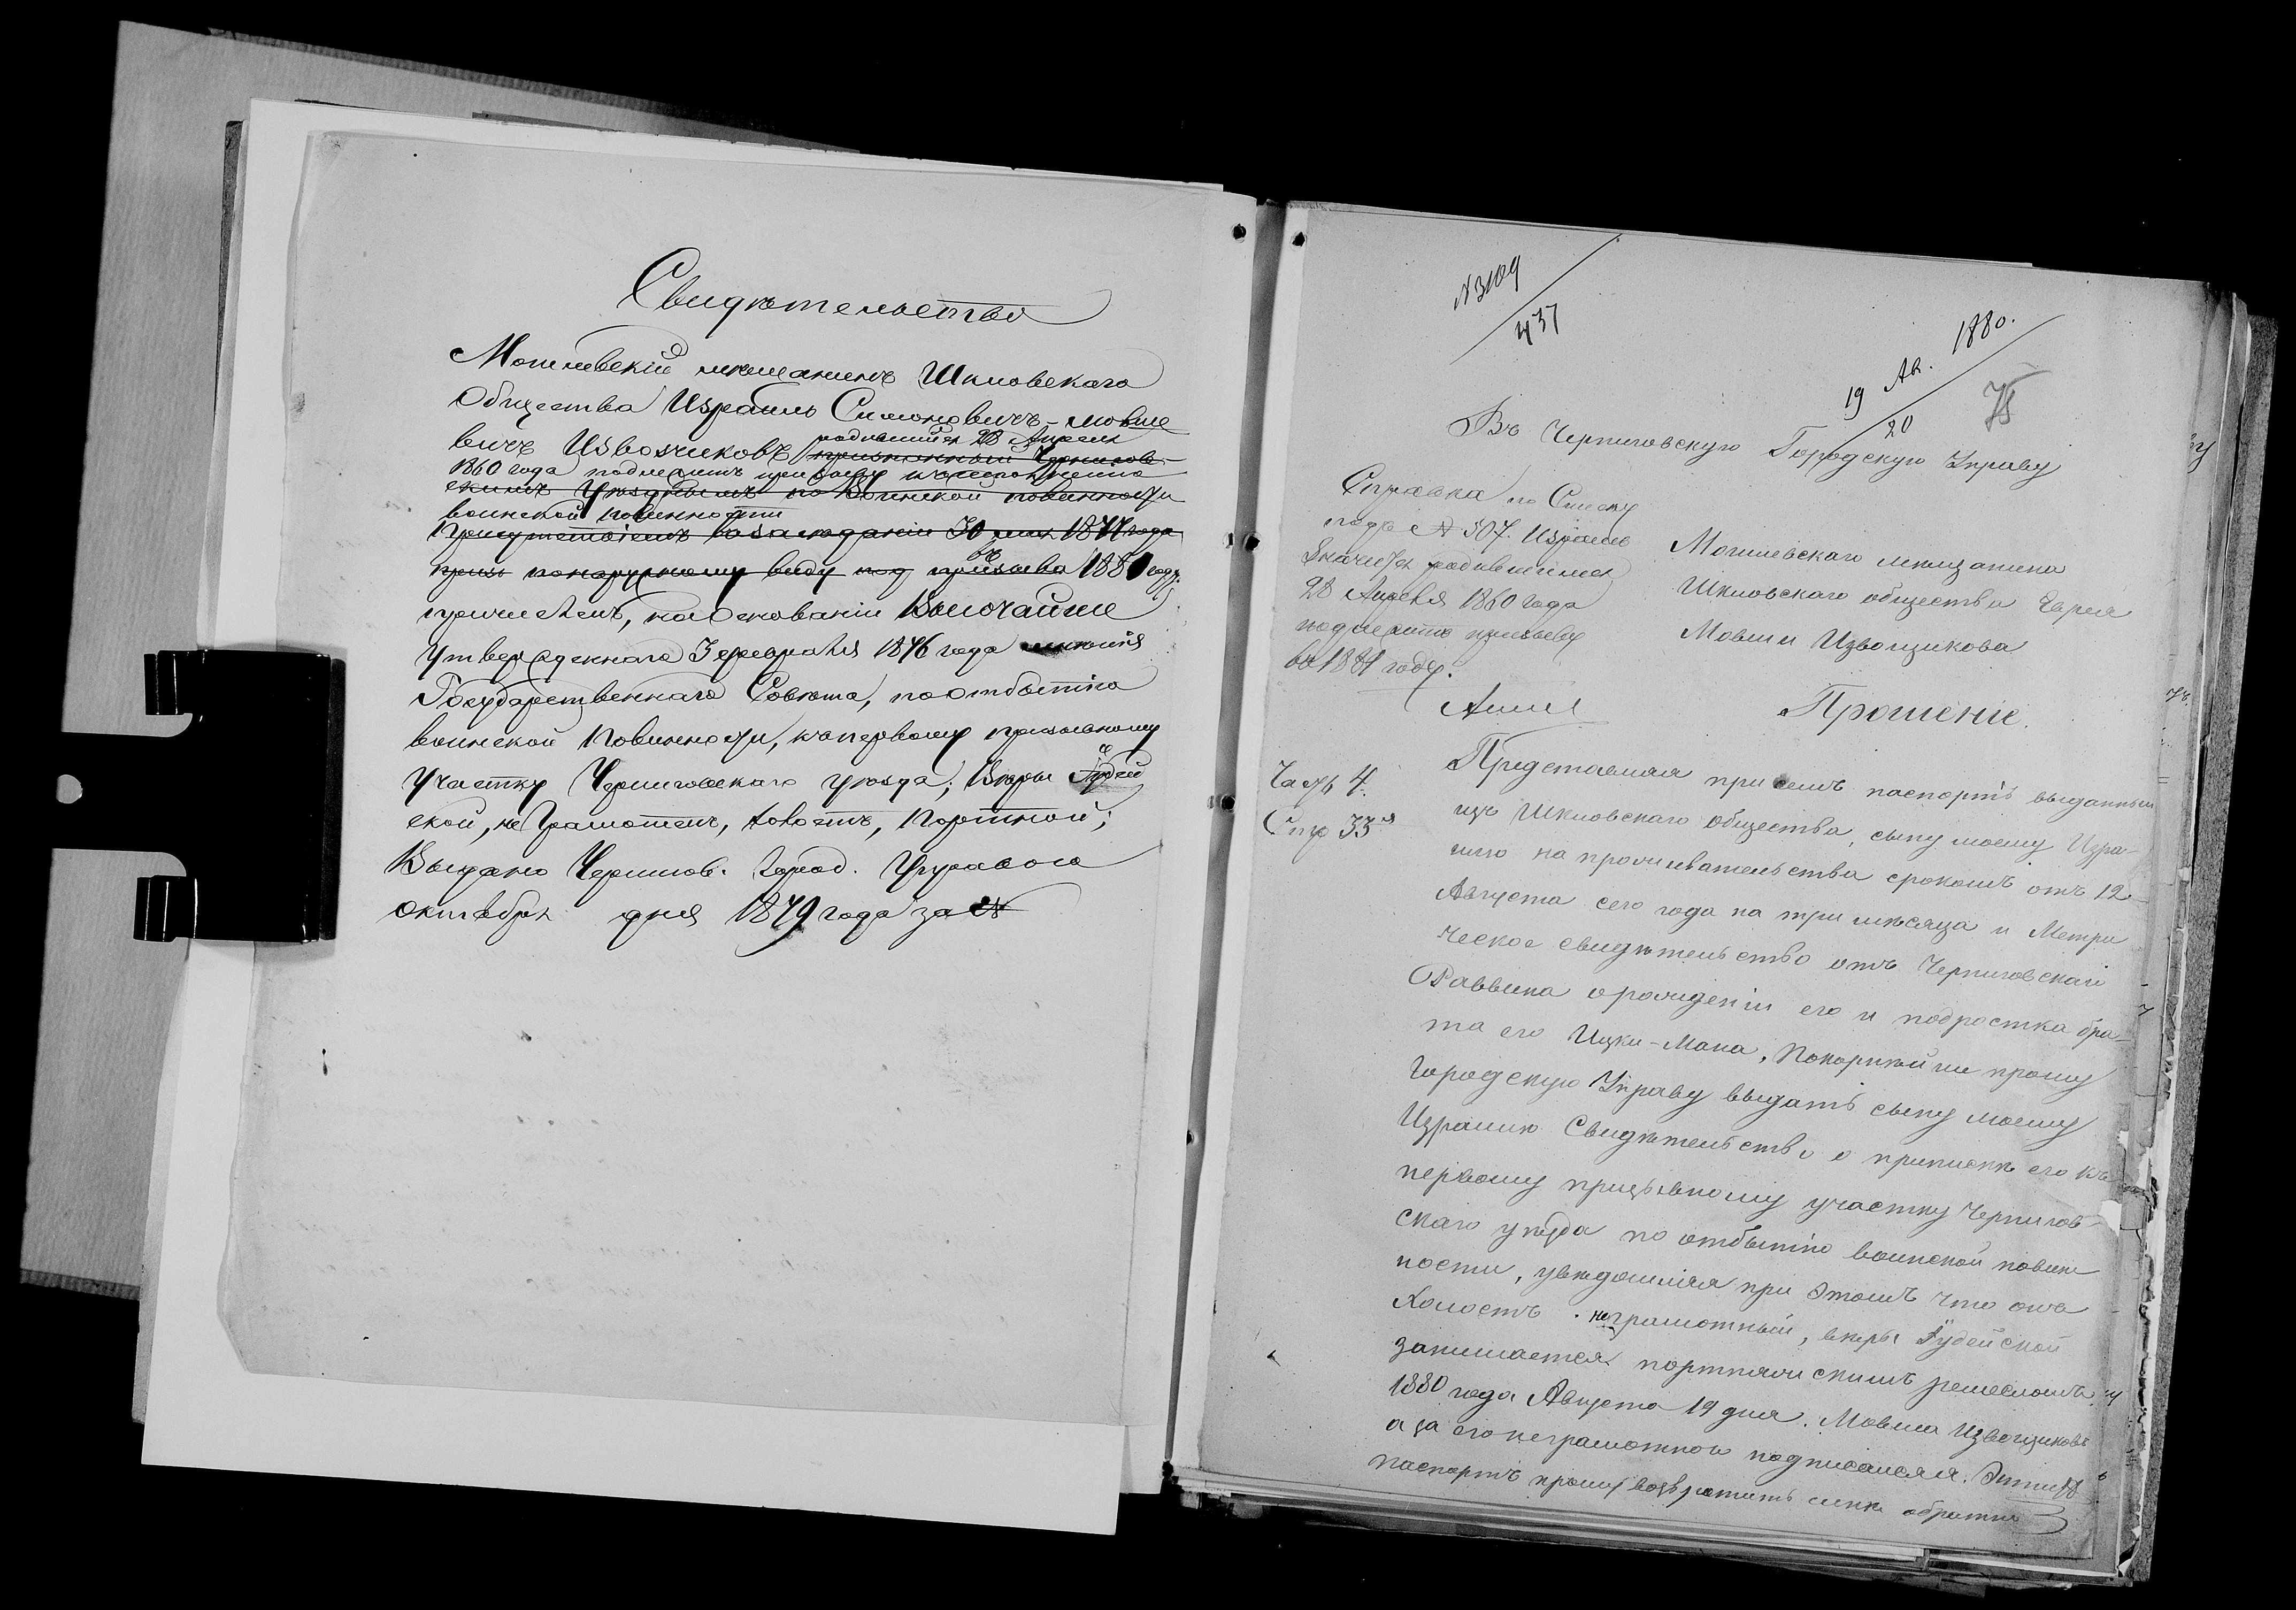 Свидѣтельство
Могилевскій мѣщанинъ Шкловскаго
Общества Израиль Симоновичъ-Мовше
вичъ Извозчиковъ родившійся 28 Апреля
признанный Чернигов-
1860 года подлежитъ призыву къ исполненію
скимъ Уѣзднымъ по Воинской повинности
воинской повинности
Присутствіемъ въ заседаніи 30 1877 года
понаружному виду под призыва въ 1881 году.
причисленъ, на основаніи Высочайше
утвержденнаго 3 февраля 1876 года мнѣнія
Государственнаго Совѣта, по отбытію
воинской повинности, къ первому призывному
участку Черниговскаго уѣзда; Вѣры Іудей
ской, не грамотенъ, холостъ, Портной;
Выдано Чернигов. город. Управою
октября дня 1879 года за №
N 3109
437
19 Ав. 1880.
20
Въ Черниговскую Городскую Управу
Справка по Списку
подъ № 507. Израиль
значится родившимся
28 Апреля 1860 года
подлежитъ призыву
въ 1881 году.
Часть 4.
Стр 33я
Могилевскаго мѣщанина
Шкловскаго общества
Мовши Извощикова
Прошеніе.
Представляя при семъ паспортъ выданный
изъ Шкловскаго общества, сыну моему Изра-
илю на проживательства срокомъ отъ 12
Августа сего года на три мѣсяца и Метри
ческое свидѣтельство отъ Черниговскаго
Раввина о рожденіи его и подростка бра-
та его Ицки-Мана, Покорнѣйше прошу
Городскую Управу выдать сыну моему
Израилю Свидѣтельство о припискѣ его къ
первому призывному участку Чернигов-
скаго уѣзда по отбытію воинской повин
ности, увѣдомляя при этомъ что онъ
Холостъ. неграмотный, вѣры Іудейской
занимается портняжескимъ ремесломъ.
1880 года Августа 19 дня. Мовша Извощиковъ
а за его неграмотного подписался.
паспортъ прошу возвратить мнѣ обратно